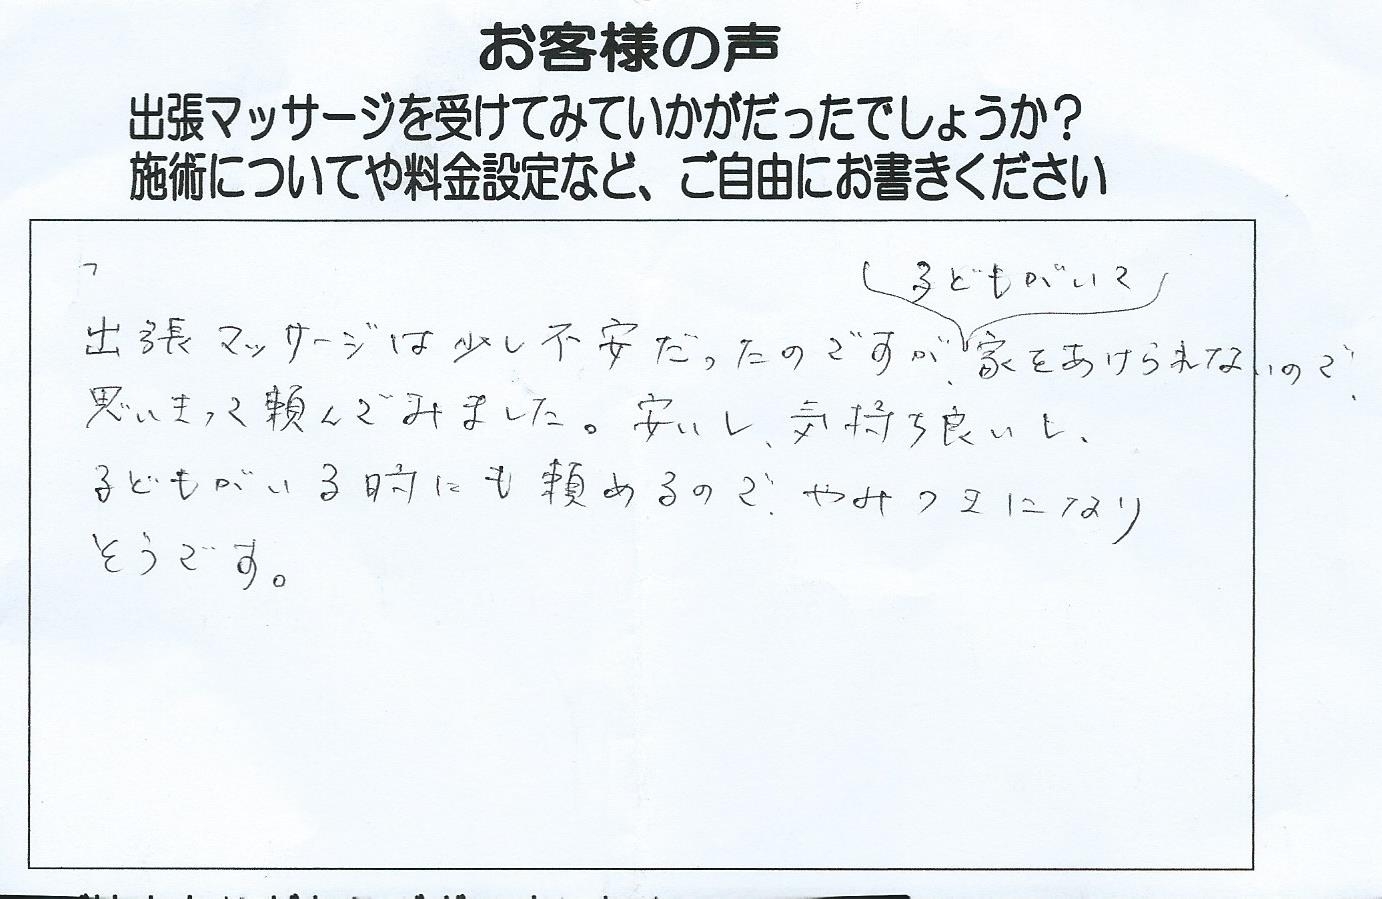 お客様の声
出張マッサージを受けてみていかがだったでしょうか？
施術についてや料金設定など、ご自由にお書きください
子どもがいて
出張マッサージは少し不安だったのですが、家をあけられないので、
思いきって頼んでみました。安いし、気持ち良いし、
子どもがいる時にも頼めるので、やみつきになり
そうです。